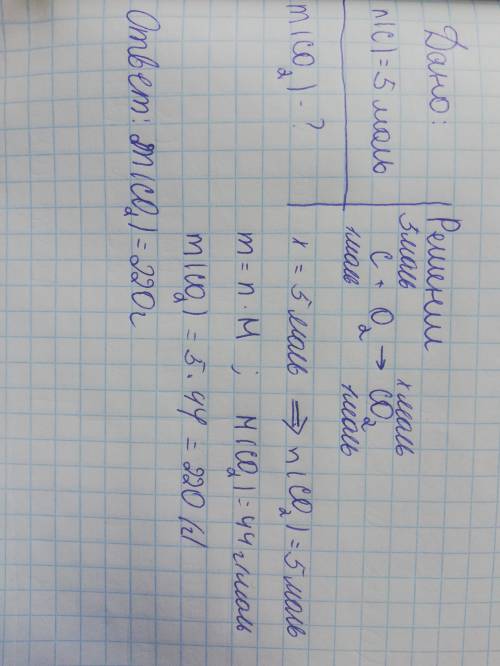 Дано:
n(C) = 5 моль
m(CO2) - ?
Решении
5моль x моль
C + O2 → CO2
1моль 1моль
x = 5 моль ⇒ n(CO2) = 5 моль
m = n · M ; M(CO2) = 44 г/моль
m(CO2) = 5 · 44 = 220 (г)
Ответ: m(CO2) = 220г